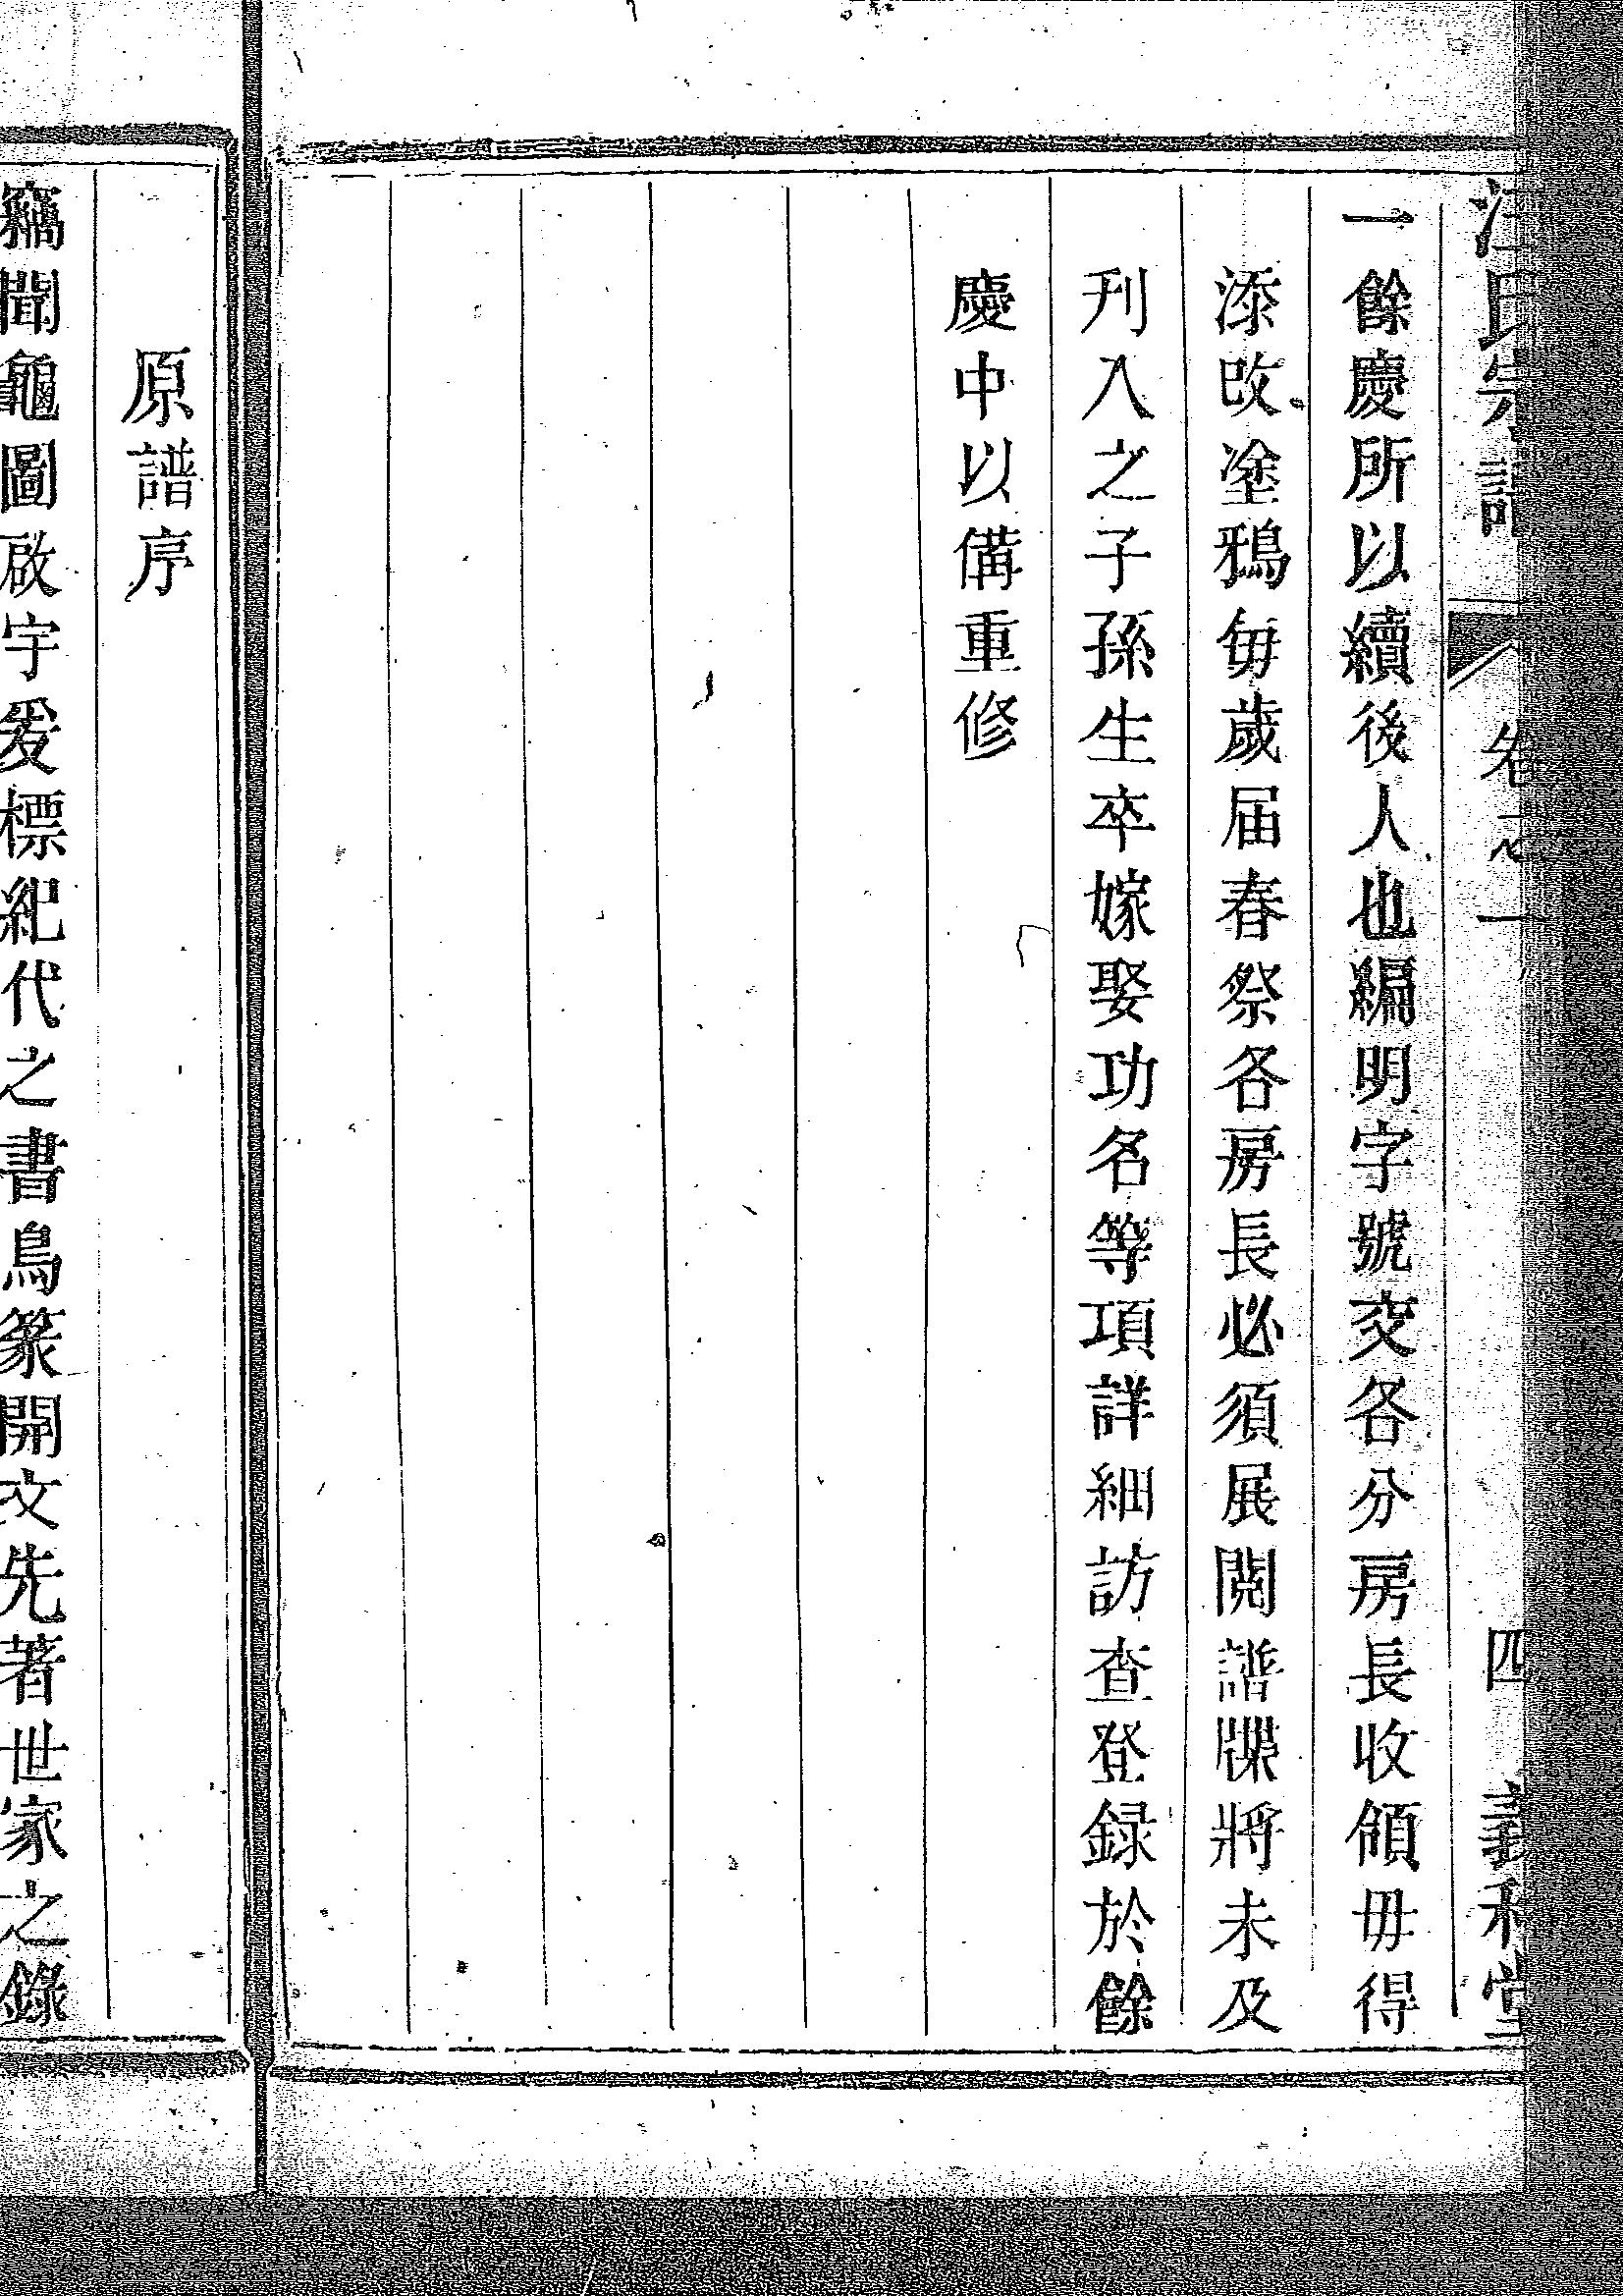 氏宗譜 卷之一 四 義和堂
一餘慶所以續後人也編明字號交各分房長收領毋得
添改塗鴉每歲届春祭各房長必須展閱譜牒將未及
刋入之子孫生卒嫁娶功名等項詳細訪查登録於餘
慶中以備重修
原譜序
竊聞龜圖啟宇爰標紀代之書鳥篆開文先著世家之錄